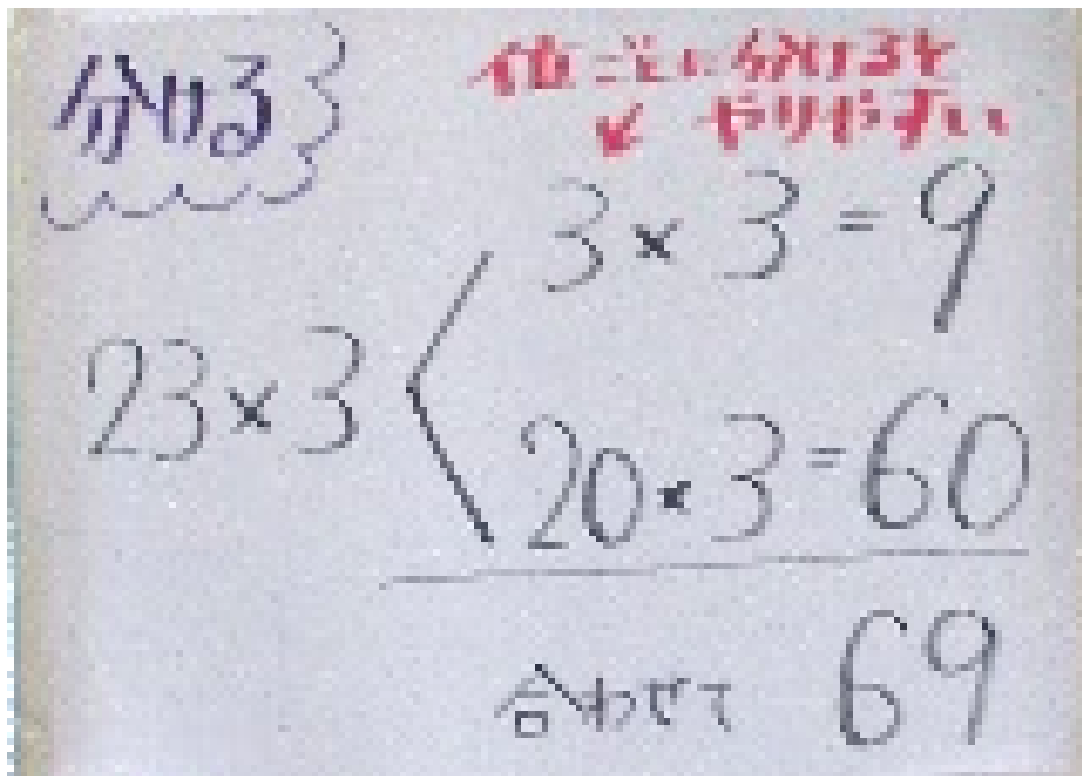 分ける
位ごとに分けると
↙ やりやすい
3×3=9
23×3
20×3=60
合わせて 69